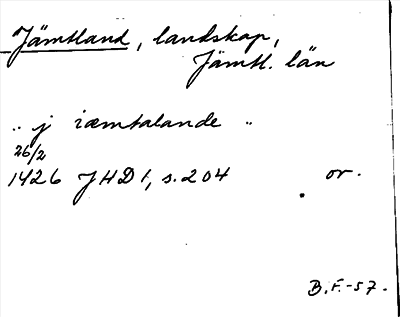 Jämtland, landskap,
Jämtl. län
„ j iæmtalande „
26/2
1426 JHD 1, s. 204 or.
B.F.-57.